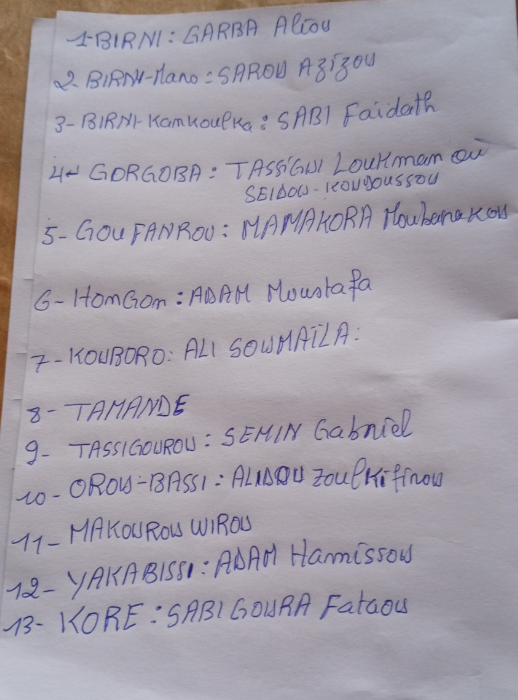 1-BIRNI : GARBA Aliou
2- BIRNI-Mano : SAROU Azizou
3- BIRNI-Kamkoulka : SABI Faïdath
4- GORGOBA : TASSIGUI Loukman ou
SEIDOU-KOUDOUSSOU
5- GOUFANROU : MAMAKORA Moubarakou
6- HomGom : ADAM Moustafa
7- KOUBORO : ALI SOUMAÏLA.
8- TAMANDE
9- TASSIGOUROU : SEMIN Gabriel
10- OROU-BASSI : ALIDOU Zoulkifirou
11- MAKOUROU WIROU
12- YAKABISSI : ADAM Hamissou
13- KORE : SABI GOURA Fataou